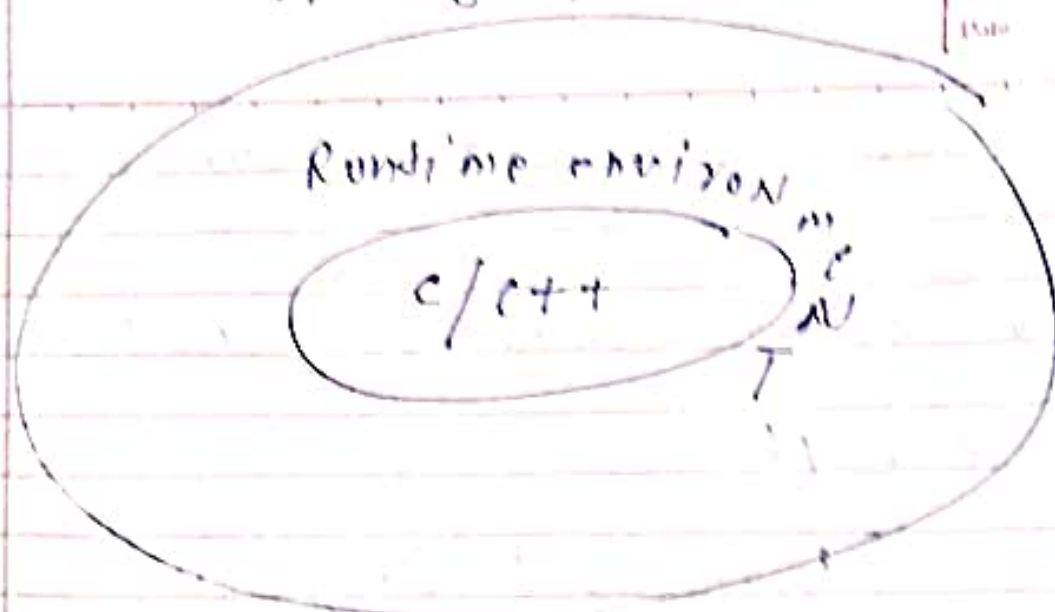 Date
Runtime environment
C/C++